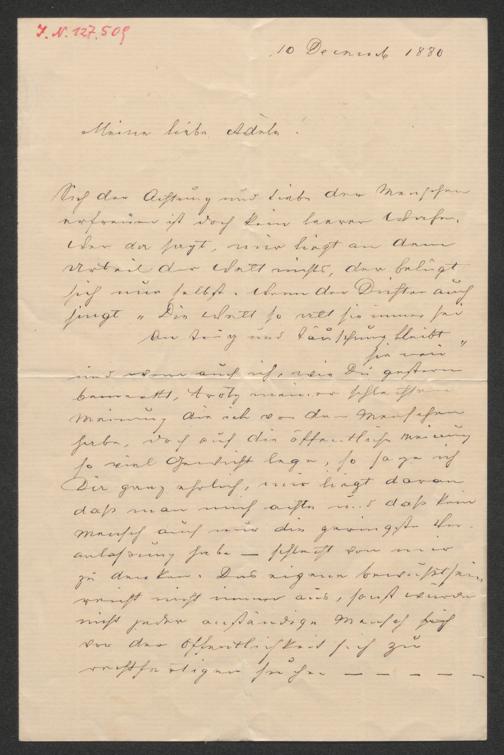 J. N. 127.509
10 Decemb 1880
Meine liebe Adele.
Sich der Achtung und Liebe der Menschen
erfreuen ist doch kein leerer Wahn,
wer da sagt, mir liegt an dem
Urteil der Welt nichts, der belügt
sich nur selbst. Wenn der Dichter auch
singt „Die Welt so alt sie immer sei
An Trug und Täuschung bleibt
sie neu"
und wenn auch ich, wie Du gestern
bemerkt, trotz meiner schlechten
Meinung die ich von den Menschen
habe, doch auf die öffentliche Meinung
so viel Gewicht lege, so sage ich
Dir ganz ehrlich, mir liegt daran
daß man mich achte und daß kein
Mensch auch nur die geringste Ver-
anlassung habe — schlecht von mir
zu denken. Das eigene Bewußtsein
reicht nicht immer aus, sonst würde
nicht jeder anständige Mensch
vor der Öffentlichkeit sich zu
rechtfertigen suchen — — — — —